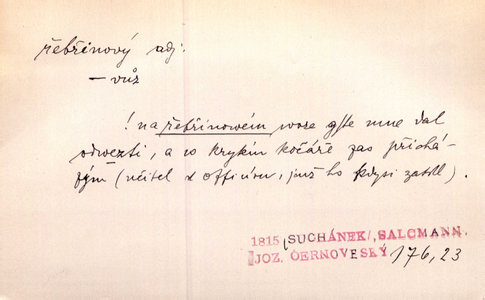 řebřinový adj:
— vůz
! na řebřinowém woze gste mne dal
odwezti, a w krytém kočáře zas přichá-
(učitel k officírou, jenž ho kdysi zatkl).
1815 SUCHÁNEK/, SALCMANN.
JOZ. ČERNOVESKÝ 176, 23